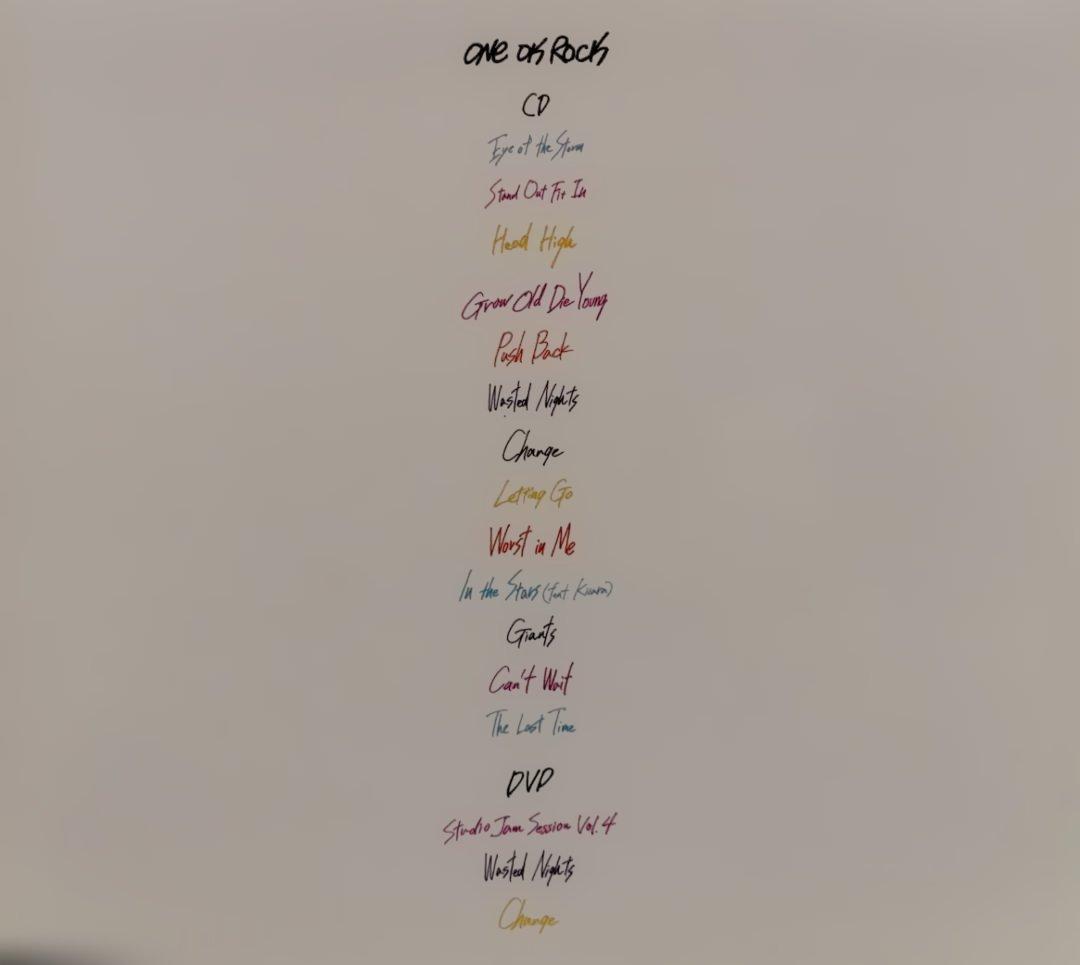 ONE OK ROCK
CD
Eye of the Storm
Stand Out Fit In
Head High
Grow Old Die Young
Push Back
Wasted Nights
Change
Letting Go
Worst in Me
In the Stars (feat Kiiara)
Giants
Can't Wait
The Last Time
DVD
Studio Jam Session Vol.4
Wasted Nights
Change